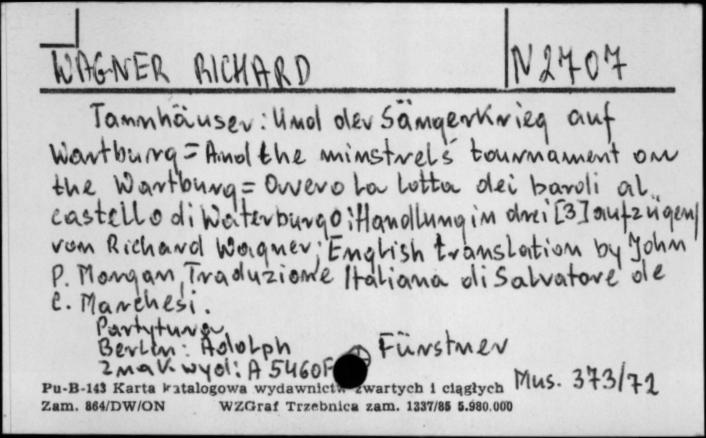 WAGNER RICHARD N 2707
Tannhäuser: Und der Sängerkrieg auf
Wartburg = And the minstrels' tournament on
the Wartburg = Ovvero La lotta dei bardi al
castello di Waterburgo; Handlung in drei [3] aufzügen/
von Richard Wagner; English translation by John
P. Morgan, Traduzione Italiana di Salvatore de
C. Marchesi.
Partytura,
Berlin: Adolph Fürstner
Znak wyd: A 5460F
Pu-B-143 Karta katalogowa wydawnictw zwartych i ciągłych Mus. 373/72
Zam. 864/DW/ON WZGraf Trzebnica zam. 1337/85 5.980.000